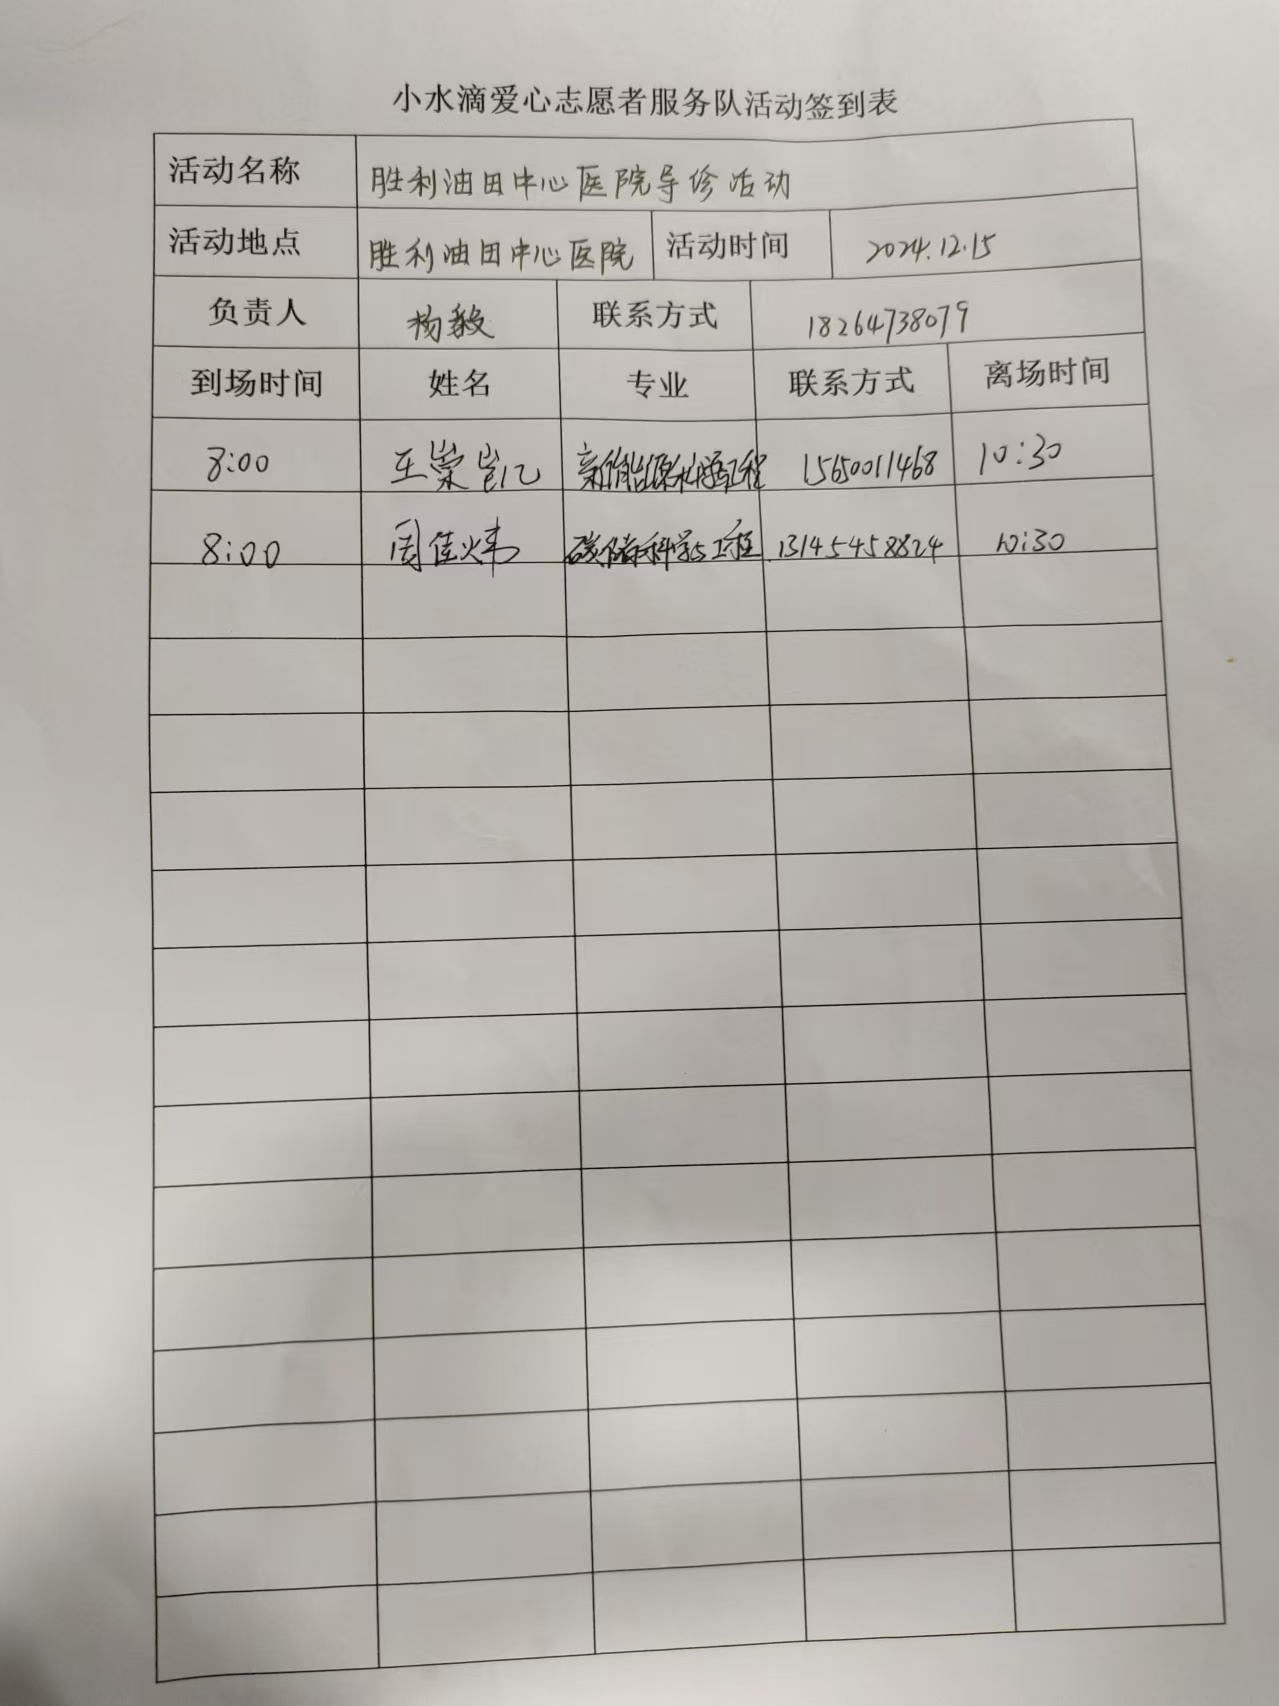 小水滴爱心志愿者服务队活动签到表
活动名称 胜利油田中心医院导诊活动
活动地点 胜利油田中心医院 活动时间 2024.12.15
负责人 杨毅 联系方式 18264738079
到场时间 姓名 专业 联系方式 离场时间
8:00 王崇岂几 新能源科学与工程 15650011468 10:30
8:00 周佳炜 碳储科学与工程 13145458824 10:30